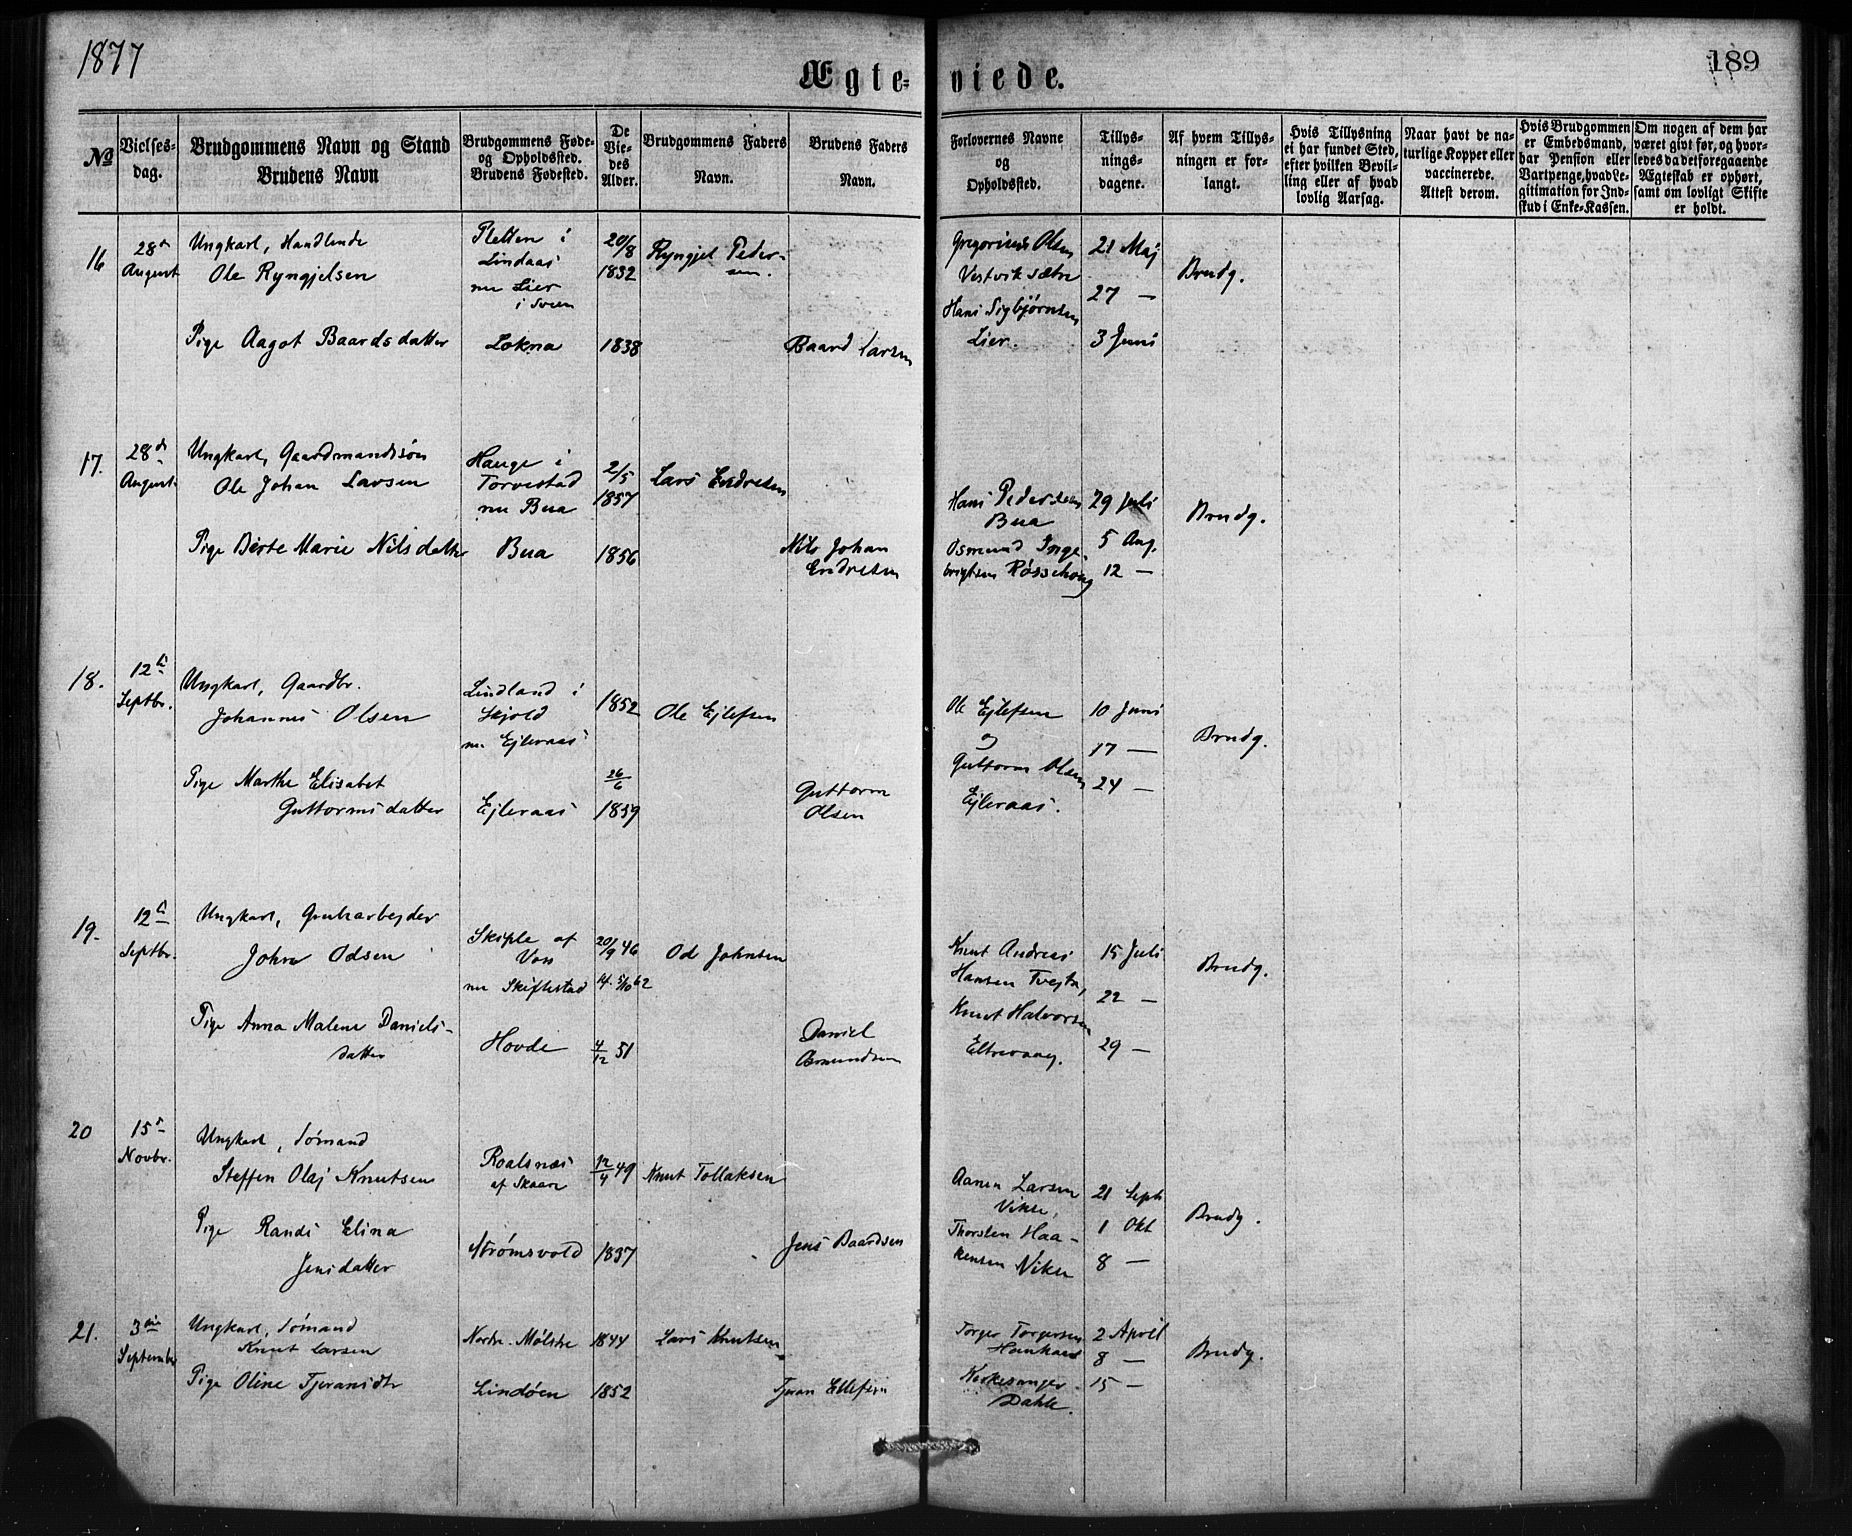 1877
189
Ægte- viede.
No
Vielses-
dag.
Brudgommens Navn og Stand
Brudens Navn
Brudgommens Føde-
og Opholdssted.
Brudens Fødested.
De
Vie-
des
Alder.
Brudgommens Faders
Navn.
Brudens Faders
Navn.
Forlovernes Navne
og
Opholdssted.
Tillys-
nings-
dagene.
Af hvem Tillys-
ningen er for-
langt.
Hvis Tillysning
ei har fundet Sted,
efter hvilken Bevil-
ling eller af hvad
lovlig Aarsag.
Naar havt de na-
turlige Kopper eller
vaccinerede.
Attest derom.
Hvis Brudgommen
er Embedsmand,
har Pension eller
Vartpenge, hvad Le-
gitimation for Ind-
skud i Enke-Kassen.
Om nogen af dem har
været givt før, og hvor-
ledes da det foregaaende
Ægteskab er ophørt,
samt om lovligt Skifte
er holdt.
16
28de
August
Ungkarl, Handlende
Ole Ryngjelsen
i
Lindaas
nu Lier
i Sveen
20/8
1832
Ryngjel Peder-
sen.
Gregorius Olsen
Vestvik sætre
Hans Sigbjørnsen
Lier.
21 Maj
27 —
3 Juni
Brudg.
Pige Aagot Baardsdatter
Lokna
1838
Baard Larsen
17.
28de
August
Ungkarl, Gaardmandssøn
Ole Johan Larsen
Hauge i
Torvestad
nu Bua
2/5
1857
Lars Endresen
Hans Pedersen
Bua
Osmund Inge-
brigtsen Røssehoug
29 Juli
5 Aug.
12 —
Brudg.
Pige Berte Marie Nilsdatter
Bua
1856
Nils Johan
Endresen
18.
12te
Septbr.
Ungkarl, Gaardbr.
Johannes Olsen
Lindland i
Skjold
nu Ejleraas
1852
Ole Ejlefsen
Ole Ejlefsen
og
Guttorm Olsen
Ejleraas.
10 Juni
17 —
24 —
Brudg.
Pige Marthe Elisabet
Guttormsdatter
Ejleraas
26/6
1859
Guttorm
Olsen
19.
12te
Septbr.
Ungkarl, Grubearbejder
John Odsen
Skiple af
Voss
nu Skiftestad
20/9 46
Od Johnsen
Knut Andreas
Hansen Tvejta,
Knut Halvorsen
Eltrevaag.
15 Juli
22 —
29 —
Brudg.
Pige Anna Malene Daniels-
datter
Hovde
4/12 51
Daniel
Asmundsen
20
15de
Novbr.
Ungkarl, Sømand
Steffen Olaj Knutsen
Roalsnæs
af Skaare
12/4 49
Knut Tollaksen
Aanen Larsen
Vikse,
Thorsten Haa-
kensen Vikse
21 Sept
1 Okt
8 —
Brudg.
Pige Randi Elina
Jensdatter
Strømsvold
1837
Jens Baardsen
21.
3die
September
Ungkarl, Sømand
Knut Larsen
Nordre Mølstre
1844
Lars Knutsen
Torger Torgersen
2 April
8 —
15 —
Brudg.
Pige Oline Tjeransdtr
Lindøen
1852
Tjeran Ellefsen
Dahle.